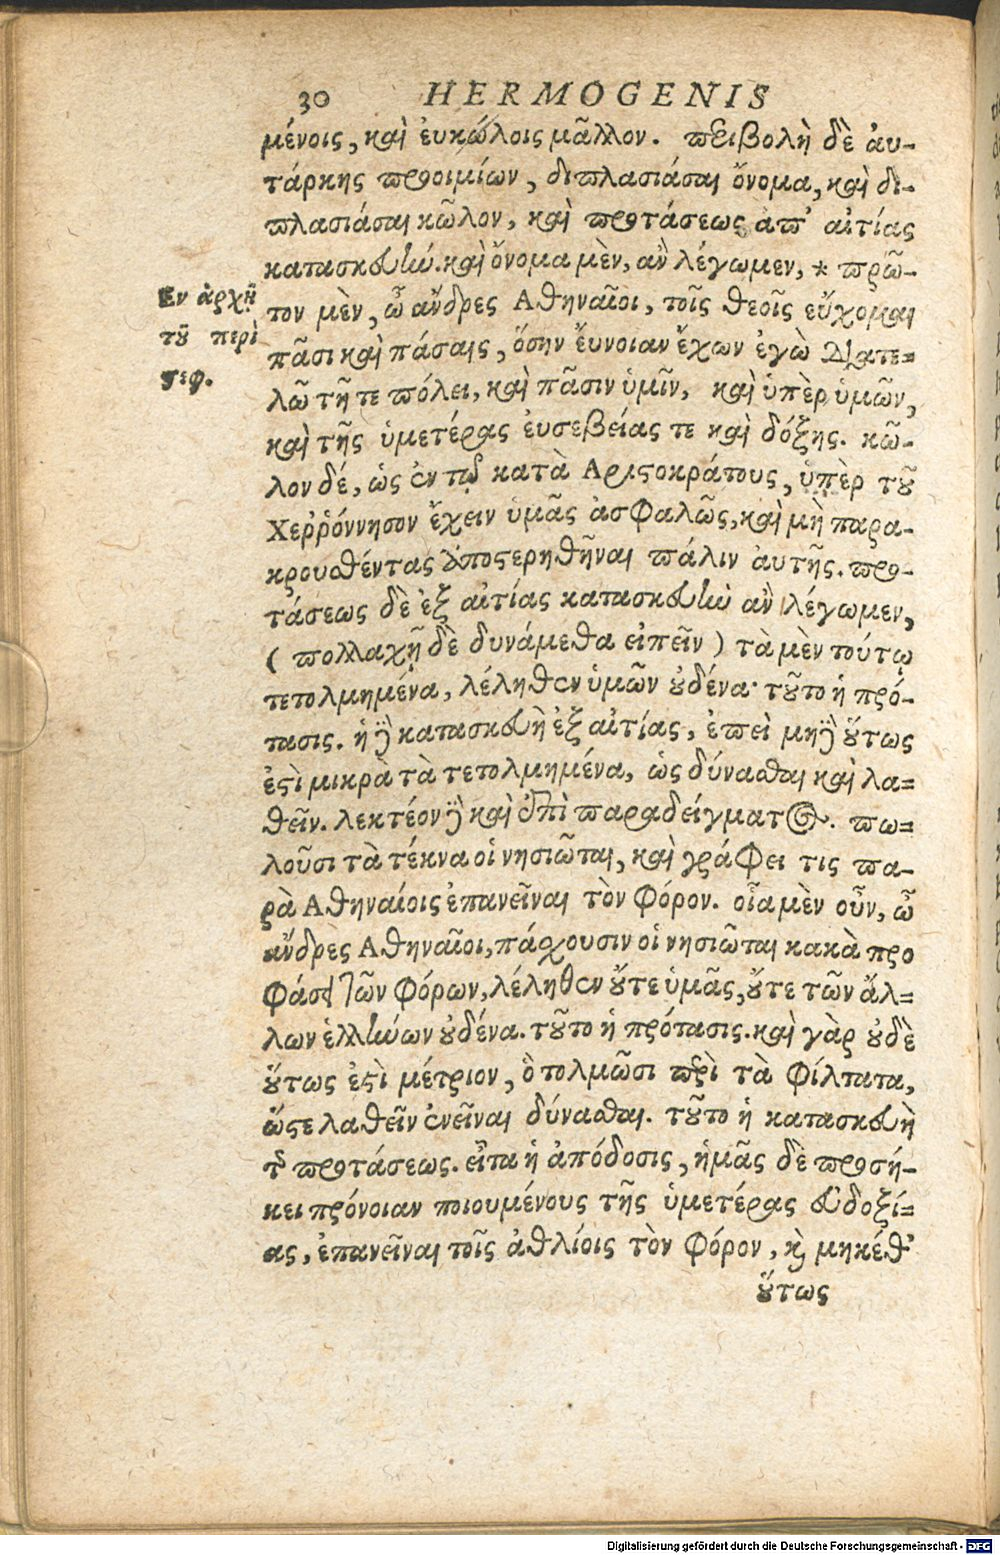 30 HERMOGENIS
μένοις, καὶ ἐυκώλοις μᾶλλον. περιβολὴ δὲ ἀυ-
τάρκης προοιμίων, διπλασιάσαι ὄνομα, καὶ δι-
πλασιάσαι κῶλον, καὶ προτάσεως ἀπ' αἰτίας
κατασκευή. καὶ ὄνομα μὲν, ἂν λέγωμεν, * πρῶ-
Εν ἀρχῇ
τον μὲν, ὦ ἄνδρες Αθηναῖοι, τοῖς θεοῖς εὔχομαι
τοῦ περὶ
πᾶσι καὶ πάσαις, ὅσην ἔυνοιαν ἔχων ἐγὼ διατε-
στεφ.
λῶ τῇ τε πόλει, καὶ πᾶσιν ὑμῖν, καὶ ὑπὲρ ὑμῶν,
καὶ τῆς ὑμετέρας ἐυσεβείας τε καὶ δόξης. κῶ-
λον δέ, ὡς ἐν τῷ κατὰ Αριστοκράτους, ὑπὲρ τοῦ
Χερῤόννησον ἔχειν ὑμᾶς ἀσφαλῶς, καὶ μὴ παρα-
κρουσθέντας ἀποστερηθῆναι πάλιν ἀυτῆς. προ-
τάσεως δὲ ἐξ αἰτίας κατασκευὴ ἂν λέγωμεν,
( πολλαχῇ δὲ δυνάμεθα εἰπεῖν ) τὰ μὲν τούτῳ
τετολμημένα, λέληθεν ὑμῶν οὐδένα· τοῦτο ἡ πρό-
τασις. ἡ δὲ κατασκευὴ ἐξ αἰτίας, ἐπεὶ μηδὲ οὕτως
ἐστὶ μικρὰ τὰ τετολμημένα, ὡς δύνασθαι καὶ λα-
θεῖν. λεκτέον δὲ καὶ ἐπὶ παραδείγματος. πω-
λοῦσι τὰ τέκνα οἱ νησιῶται, καὶ γράφει τις πα-
ρὰ Αθηναίοις ἐπανεῖναι τὸν φόρον. οἷα μὲν οὖν, ὦ
ἄνδρες Αθηναῖοι, πάσχουσιν οἱ νησιῶται κακὰ προ
φάσει τῶν φόρων, λέληθεν οὔτε ὑμᾶς, οὔτε τῶν ἄλ-
λων ἑλλήνων οὐδένα. τοῦτο ἡ πρότασις. καὶ γὰρ οὐδὲ
οὕτως ἐστὶ μέτριον, ὃ τολμῶσι περὶ τὰ φίλτατα,
ὥστε λαθεῖν ἐνεῖναι δύνασθαι. τοῦτο ἡ κατασκευὴ
τῆς προτάσεως. εἶτα ἡ ἀπόδοσις, ἡμᾶς δὲ προσή-
κει πρόνοιαν ποιουμένους τῆς ὑμετέρας εὐδοξί-
ας, ἐπανεῖναι τοῖς ἀθλίοις τὸν φόρον, καὶ μηκέθ'
οὕτως
Digitalisierung gefördert durch die Deutsche Forschungsgemeinschaft - DFG